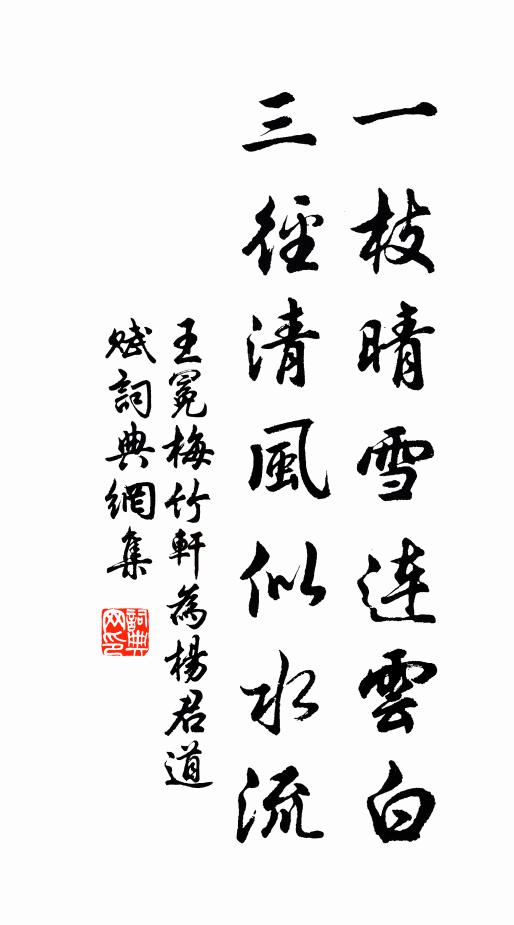 一枝晴雪連雲白
三徑清風似水流
王冕梅竹軒為楊君道
賦詞典網集
詞典